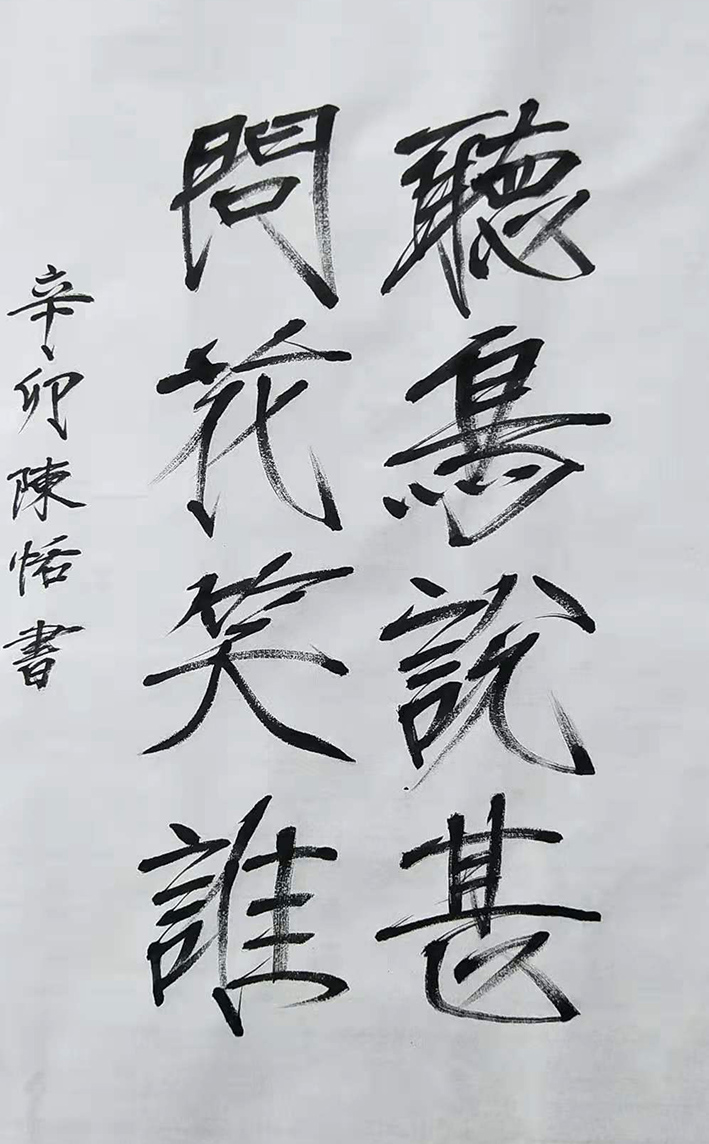 聽鳥説甚
問花笑誰
辛卯陳恬書